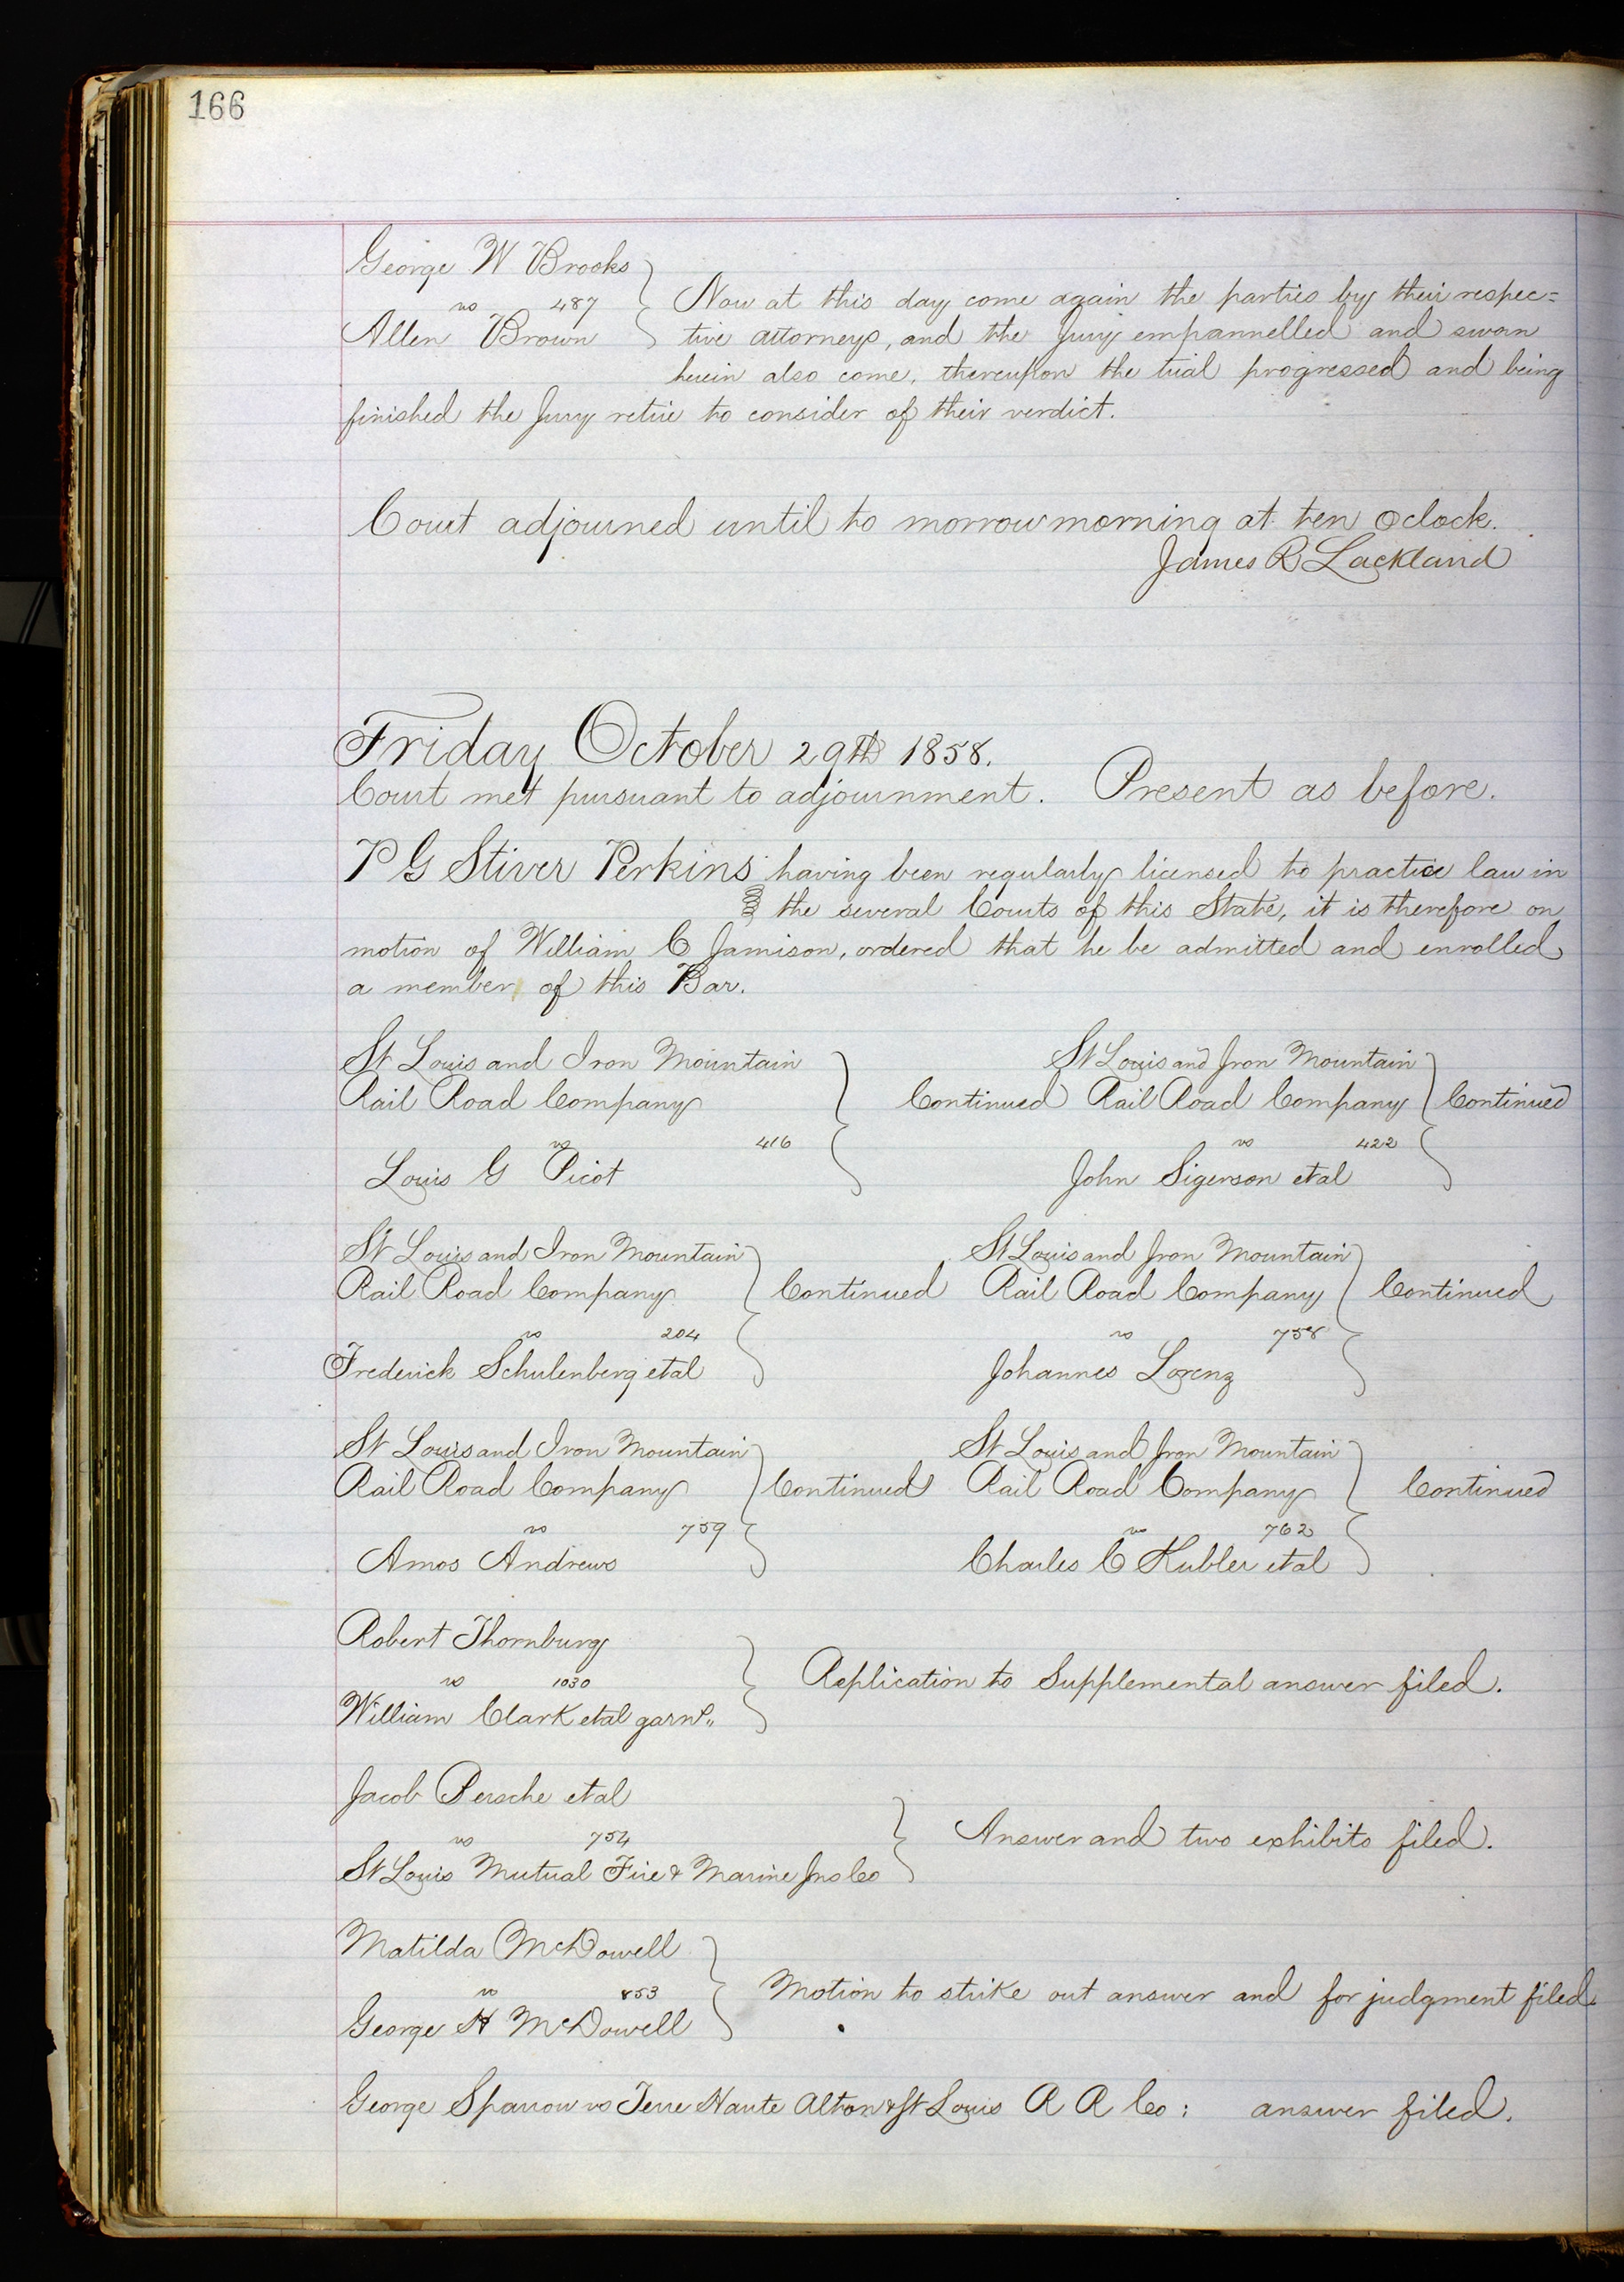 166
George W Brooks
vs 487 Now at this day come again the parties by their respec=
Allen Brown tive attorneys, and the Jury empannelled and sworn
herein also come, thereupon the trial progressed and being
finished the Jury retire to consider of their verdict.
Court adjourned until to morrow morning at ten oclock.
James R Lackland
Friday October 29th 1858.
Court met pursuant to adjournment. Present as before.
P G Stiver Perkins having been regularly licensed to practice law in
the several Courts of this State, it is therefore on
motion of William C Jamison, ordered that he be admitted and enrolled
a member of this Bar.
St Louis and Iron Mountain St Louis and Iron Mountain
Rail Road Company Continued Rail Road Company Continued
vs 416 vs 422
Louis G Picot John Sigerson etal
St Louis and Iron Mountain St Louis and Iron Mountain
Rail Road Company Continued Rail Road Company Continued
vs 204 vs 758
Frederick Schulenberg etal Johannes Lorenz
St Louis and Iron Mountain St Louis and Iron Mountain
Rail Road Company Continued Rail Road Company Continued
vs 759 vs 762
Amos Andrews Charles C Kubler etal
Robert Thornburg
vs 1030 Replication to Supplemental answer filed.
William Clark etal garns.
Jacob Persche etal
vs 754 Answer and two exhibits filed.
St Louis Mutual Fire & Marine Ins Co
Matilda McDowell
vs 853 Motion to strike out answer and for judgment filed.
George H McDowell
George Sparrow vs Terre Haute Alton & St Louis R R Co: answer filed.